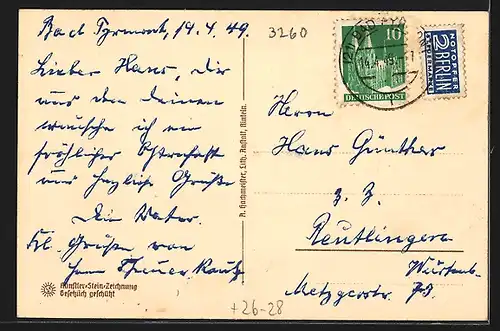 Bad Pyrmont, 19. 4. 49.
Lieber Hans, Dir
und den Deinen
wünsche ich ein
fröhliches Osterfest
und herzliche Grüße
Dein Vater.
Hl. Grüße von
Künstler-Stein-Zeichnung
Gesetzlich geschützt
A. Hachmeister, Lith. Anstalt, Rinteln.
3260
10
DEUTSCHE POST
NOTOPFER
2 BERLIN
STEUERMARKE
Herrn
Hans Günther
z. Z.
Reutlingen
Württemb.
Metzgerstr.
+26-28